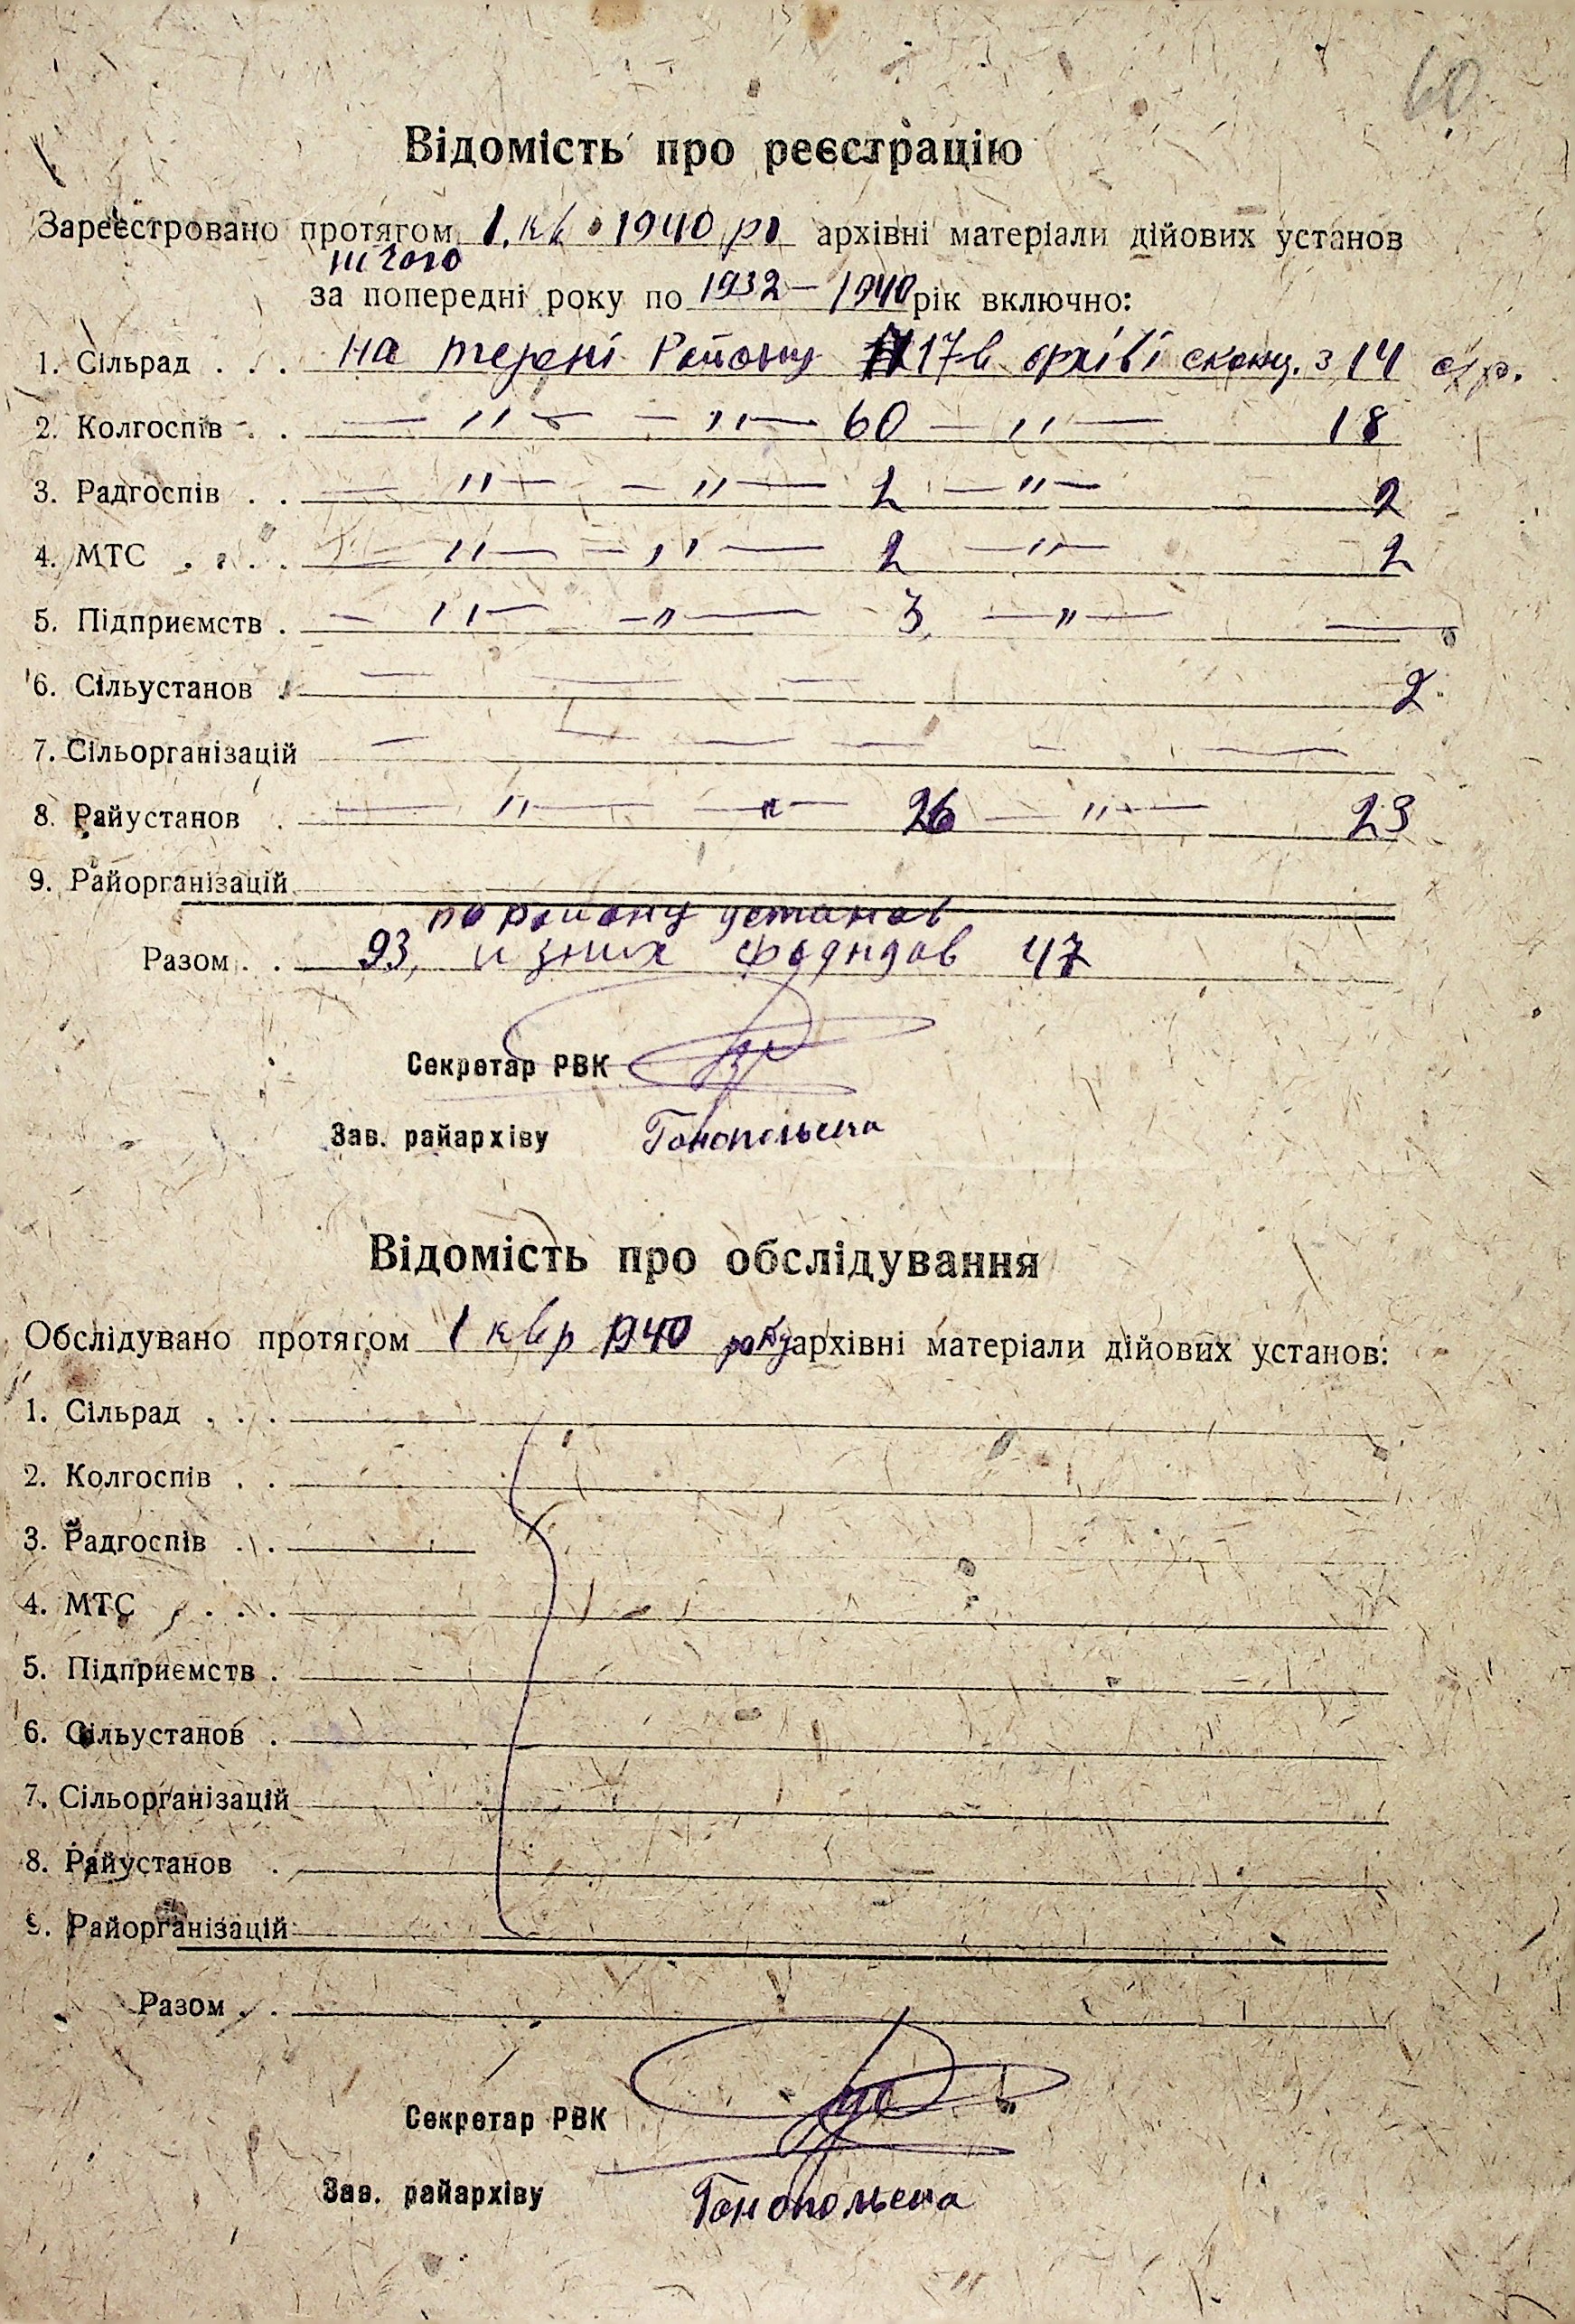 60
Відомість про реєстрацію
Зареєстровано протягом 1. кв. 1940 р. архівні матеріали дійових установ
нічого
за попередні року по 1932 – 1940 рік включно:
1. Сільрад . . . на терені Району 17 в архіві сконц. з 14 с/р.
2. Колгоспів . . — " — — " — 60 — " — 18
3. Радгоспів . . — " — — " — 2 — " — 2
4. МТС . . . . — " — — " — 2 — " — 2
5. Підприємств . — " — — " — 3 — " — —
6. Сільустанов . — — — 2
7. Сільорганізацій — — — — — —
8. Райустанов . — " — — " — 26 — " — 23
9. Райорганізацій
по району установ
Разом . . 93, из них фондов 47
Секретар РВК
Зав. райархіву Гонопольська
Відомість про обслідування
Обслідувано протягом 1 кв р 1940 року архівні матеріали дійових установ:
1. Сільрад . . .
2. Колгоспів . .
3. Радгоспів . .
4. МТС . . . .
5. Підприємств .
6. Сільустанов .
7. Сільорганізацій
8. Райустанов .
9. Райорганізацій
Разом . .
Секретар РВК
Зав. райархіву Гонопольська